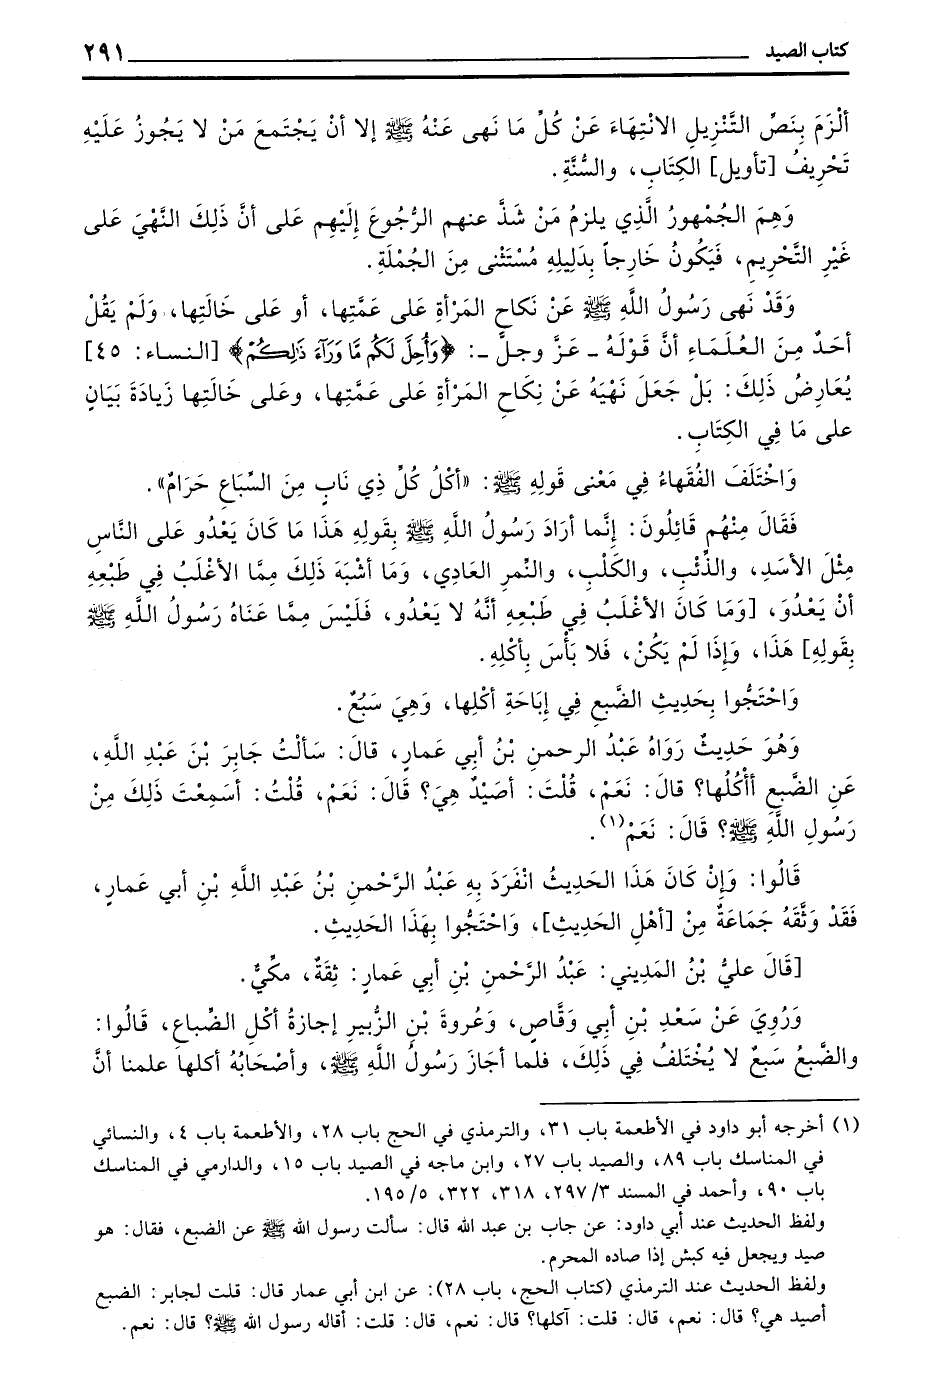 كتاب الصيد ٢٩١
أَلْزَمَ بِنَصِّ التَّنْزِيلِ الانْتِهَاءَ عَنْ كُلِّ مَا نَهى عَنْهُ ﷺ إلا أنْ يَجْتَمعَ مَنْ لا يَجُوزُ عَلَيْهِ
تَحْرِيفُ [تأويل] الكِتَابِ، والسُّنَّةِ.
وَهِمَ الجُمْهورُ الَّذِي يلزمُ مَنْ شَذَّ عنهم الرُّجُوعَ إِلَيْهِم عَلى أنَّ ذَلِكَ النَّهْيَ عَلى
غَيْرِ التَّحْرِيمِ، فَيَكُونُ خَارِجاً بِدَلِيلِهِ مُسْتَثْنى مِنَ الجُمْلَةِ.
وَقَدْ نَهى رَسُولُ اللَّهِ ﷺ عَنْ نَكاحِ المَرْأةِ عَلى عَمَّتِها، أو عَلى خَالَتِها، وَلَمْ يَقُلْ
أحَدٌ مِنَ العُلَمَاءِ أنَّ قَوْلَهُ ـ عَزَّ وجلَّ ـ: ﴿وَأُحِلَّ لَكُم مَّا وَرَآءَ ذَٰلِكُمْ﴾ [النساء: ٤٥]
يُعَارِضُ ذَلِكَ: بَلْ جَعَلَ نَهْيَهُ عَنْ نِكَاحِ المَرْأةِ عَلى عَمَّتِها، وعَلى خَالَتِها زِيادَةَ بَيَانٍ
على مَا فِي الكِتَابِ.
وَاخْتَلَفَ الفُقَهاءُ فِي مَعْنى قَولِهِ ﷺ: «أكْلُ كُلِّ ذِي نَابٍ مِنَ السِّبَاعِ حَرَامٌ».
فَقَالَ مِنْهُم قَائِلُونَ: إنَّما أرَادَ رَسُولُ اللَّهِ ﷺ بِقَولِهِ هَذَا مَا كَانَ يَعْدُو عَلى النَّاسِ
مِثْلَ الأسَدِ، والذِّئْبِ، والكَلْبِ، والنَّمرِ العَادِي، وَمَا أشْبَهَ ذَلِكَ مِمَّا الأغْلَبُ فِي طَبْعِهِ
أنْ يَعْدُوَ، [وَمَا كَانَ الأغْلَبُ فِي طَبْعِهِ أنَّهُ لا يَعْدُو، فَلَيْسَ مِمَّا عَنَاهُ رَسُولُ اللَّهِ ﷺ
بِقَولِهِ] هَذَا، وَإِذَا لَمْ يَكُنْ، فَلا بَأْسَ بِأكْلِهِ.
وَاحْتَجُّوا بِحَدِيثِ الضَّبعِ فِي إبَاحَةِ أكْلِها، وَهِيَ سَبُعٌ.
وَهُوَ حَدِيثٌ رَوَاهُ عَبْدُ الرحمنِ بْنُ أبي عَمارٍ، قالَ: سَألْتُ جَابِرَ بْنَ عَبْدِ اللَّهِ،
عَنِ الضَّبعِ أأْكُلُها؟ قالَ: نَعَمْ، قُلْتَ: أصَيْدٌ هِيَ؟ قَالَ: نَعَمْ، قُلْتُ: أسَمِعْتَ ذَلِكَ مِنْ
رَسُولِ اللَّهِ ﷺ؟ قَالَ: نَعَمْ(١).
قَالُوا: وَإِنْ كَانَ هَذَا الحَدِيثُ انْفَرَدَ بِهِ عَبْدُ الرَّحْمنِ بْنُ عَبْدِ اللَّهِ بْنِ أبي عَمارٍ،
فَقَدْ وَثَّقَهُ جَمَاعَةٌ مِنْ [أهْلِ الحَدِيثِ]، وَاحْتَجُّوا بِهَذَا الحَدِيثِ.
[قَالَ عليُّ بْنُ المَدِيني: عَبْدُ الرَّحْمنِ بْنِ أبِي عَمارٍ: ثِقَةٌ، مكِّيٌّ.
وَرُوِيَ عَنْ سَعْدِ بْنِ أبي وَقَّاصٍ، وَعُروةَ بْنِ الزُّبيرِ إجازةُ أكْلِ الضِّباعِ، قَالُوا:
والضَّبعُ سَبعٌ لا يُخْتَلفُ فِي ذَلِكَ، فلما أجَازَ رَسُولُ اللَّهِ ﷺ، وأصْحَابُهُ أكلها علمنا أنَّ
(١) أخرجه أبو داود في الأطعمة باب ٣١، والترمذي في الحج باب ٢٨، والأطعمة باب ٤، والنسائي
في المناسك باب ٨٩، والصيد باب ٢٧، وابن ماجه في الصيد باب ١٥، والدارمي في المناسك
باب ٩٠، وأحمد في المسند ٢٩٧/٣، ٣١٨، ٣٢٢، ١٩٥/٥.
ولفظ الحديث عند أبي داود: عن جاب بن عبد الله قال: سألت رسول الله ﷺ عن الضبع، فقال: هو
صيد ويجعل فيه كبش إذا صاده المحرم.
ولفظ الحديث عند الترمذي (كتاب الحج، باب ٢٨): عن ابن أبي عمار قال: قلت لجابر: الضبع
أصيد هي؟ قال: نعم، قال: قلت: آكلها؟ قال: نعم، قال: قلت: أقاله رسول الله ﷺ؟ قال: نعم.